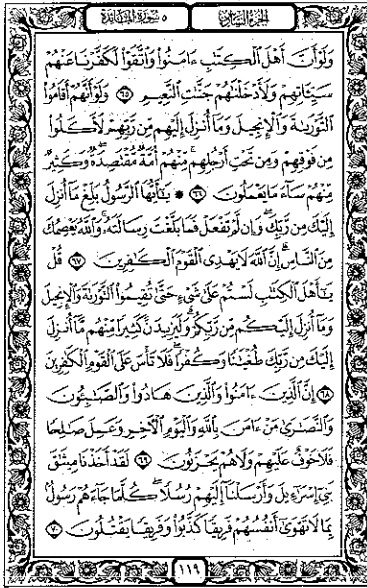 ٥ سورة المائدة
الجزء السادس
وَلَوْ أَنَّ أَهْلَ ٱلْكِتَٰبِ ءَامَنُوا۟ وَٱتَّقَوْا۟ لَكَفَّرْنَا عَنْهُمْ
سَيِّـَٔاتِهِمْ وَلَأَدْخَلْنَٰهُمْ جَنَّٰتِ ٱلنَّعِيمِ ٦٥ وَلَوْ أَنَّهُمْ أَقَامُوا۟
ٱلتَّوْرَىٰةَ وَٱلْإِنجِيلَ وَمَآ أُنزِلَ إِلَيْهِم مِّن رَّبِّهِمْ لَأَكَلُوا۟
مِن فَوْقِهِمْ وَمِن تَحْتِ أَرْجُلِهِم مِّنْهُمْ أُمَّةٌ مُّقْتَصِدَةٌ وَكَثِيرٌ
مِّنْهُمْ سَآءَ مَا يَعْمَلُونَ ٦٦ ۞ يَٰٓأَيُّهَا ٱلرَّسُولُ بَلِّغْ مَآ أُنزِلَ
إِلَيْكَ مِن رَّبِّكَ وَإِن لَّمْ تَفْعَلْ فَمَا بَلَّغْتَ رِسَالَتَهُۥ وَٱللَّهُ يَعْصِمُكَ
مِنَ ٱلنَّاسِ إِنَّ ٱللَّهَ لَا يَهْدِى ٱلْقَوْمَ ٱلْكَٰفِرِينَ ٦٧ قُلْ
يَٰٓأَهْلَ ٱلْكِتَٰبِ لَسْتُمْ عَلَىٰ شَىْءٍ حَتَّىٰ تُقِيمُوا۟ ٱلتَّوْرَىٰةَ وَٱلْإِنجِيلَ
وَمَآ أُنزِلَ إِلَيْكُم مِّن رَّبِّكُمْ وَلَيَزِيدَنَّ كَثِيرًا مِّنْهُم مَّآ أُنزِلَ
إِلَيْكَ مِن رَّبِّكَ طُغْيَٰنًا وَكُفْرًا فَلَا تَأْسَ عَلَى ٱلْقَوْمِ ٱلْكَٰفِرِينَ
٦٨ إِنَّ ٱلَّذِينَ ءَامَنُوا۟ وَٱلَّذِينَ هَادُوا۟ وَٱلصَّٰبِـُٔونَ
وَٱلنَّصَٰرَىٰ مَنْ ءَامَنَ بِٱللَّهِ وَٱلْيَوْمِ ٱلْـَٔاخِرِ وَعَمِلَ صَٰلِحًا
فَلَا خَوْفٌ عَلَيْهِمْ وَلَا هُمْ يَحْزَنُونَ ٦٩ لَقَدْ أَخَذْنَا مِيثَٰقَ
بَنِىٓ إِسْرَٰٓءِيلَ وَأَرْسَلْنَآ إِلَيْهِمْ رُسُلًا كُلَّمَا جَآءَهُمْ رَسُولٌۢ
بِمَا لَا تَهْوَىٰٓ أَنفُسُهُمْ فَرِيقًا كَذَّبُوا۟ وَفَرِيقًا يَقْتُلُونَ ٧٠
١١٩